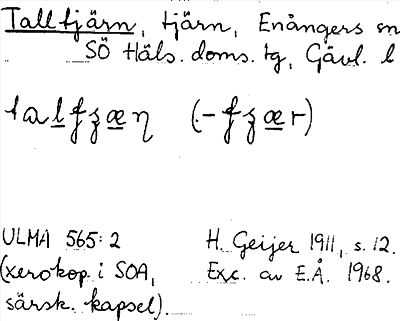 Talltjärn, tjärn, Enångers sn
SÖ Häls. doms. tg, Gävl. l
H. Geijer 1911, s. 12.
ULMA 565:2
(xerokop. i SOA,
särsk. kapsel).
Exc. av E.Å. 1968.